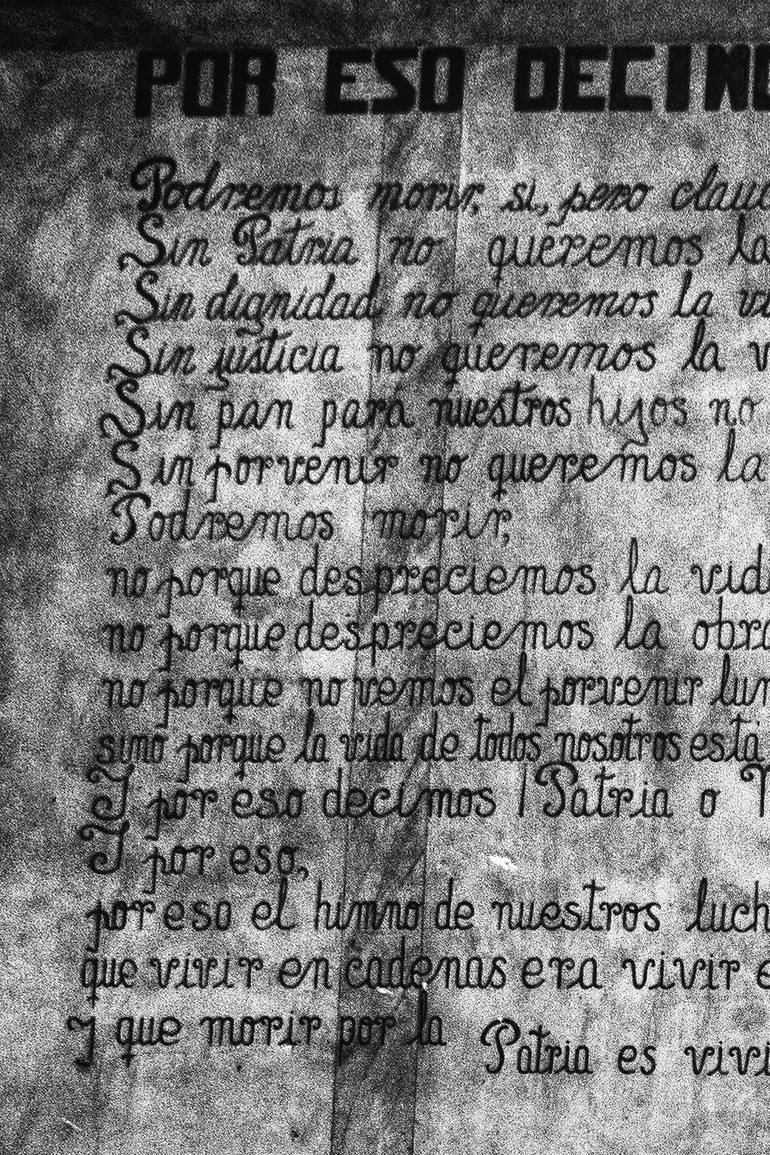 POR ESO DECIMO
Podremos morir, si, pero clauc
Sin Patria no queremos la
Sin dignidad no queremos la vi
Sin justicia no queremos la v
Sin pan para nuestros hijos no
Sin porvenir no queremos la
Podremos morir,
no porque despreciemos la vida
no porque despreciemos la obra
no porque no vemos el porvenir lum
sino porque la vida de todos nosotros está
Y por eso decimos ¡Patria o
Y por eso,
por eso el himno de nuestros luch
que vivir en cadenas era vivir e
y que morir por la Patria es vivi